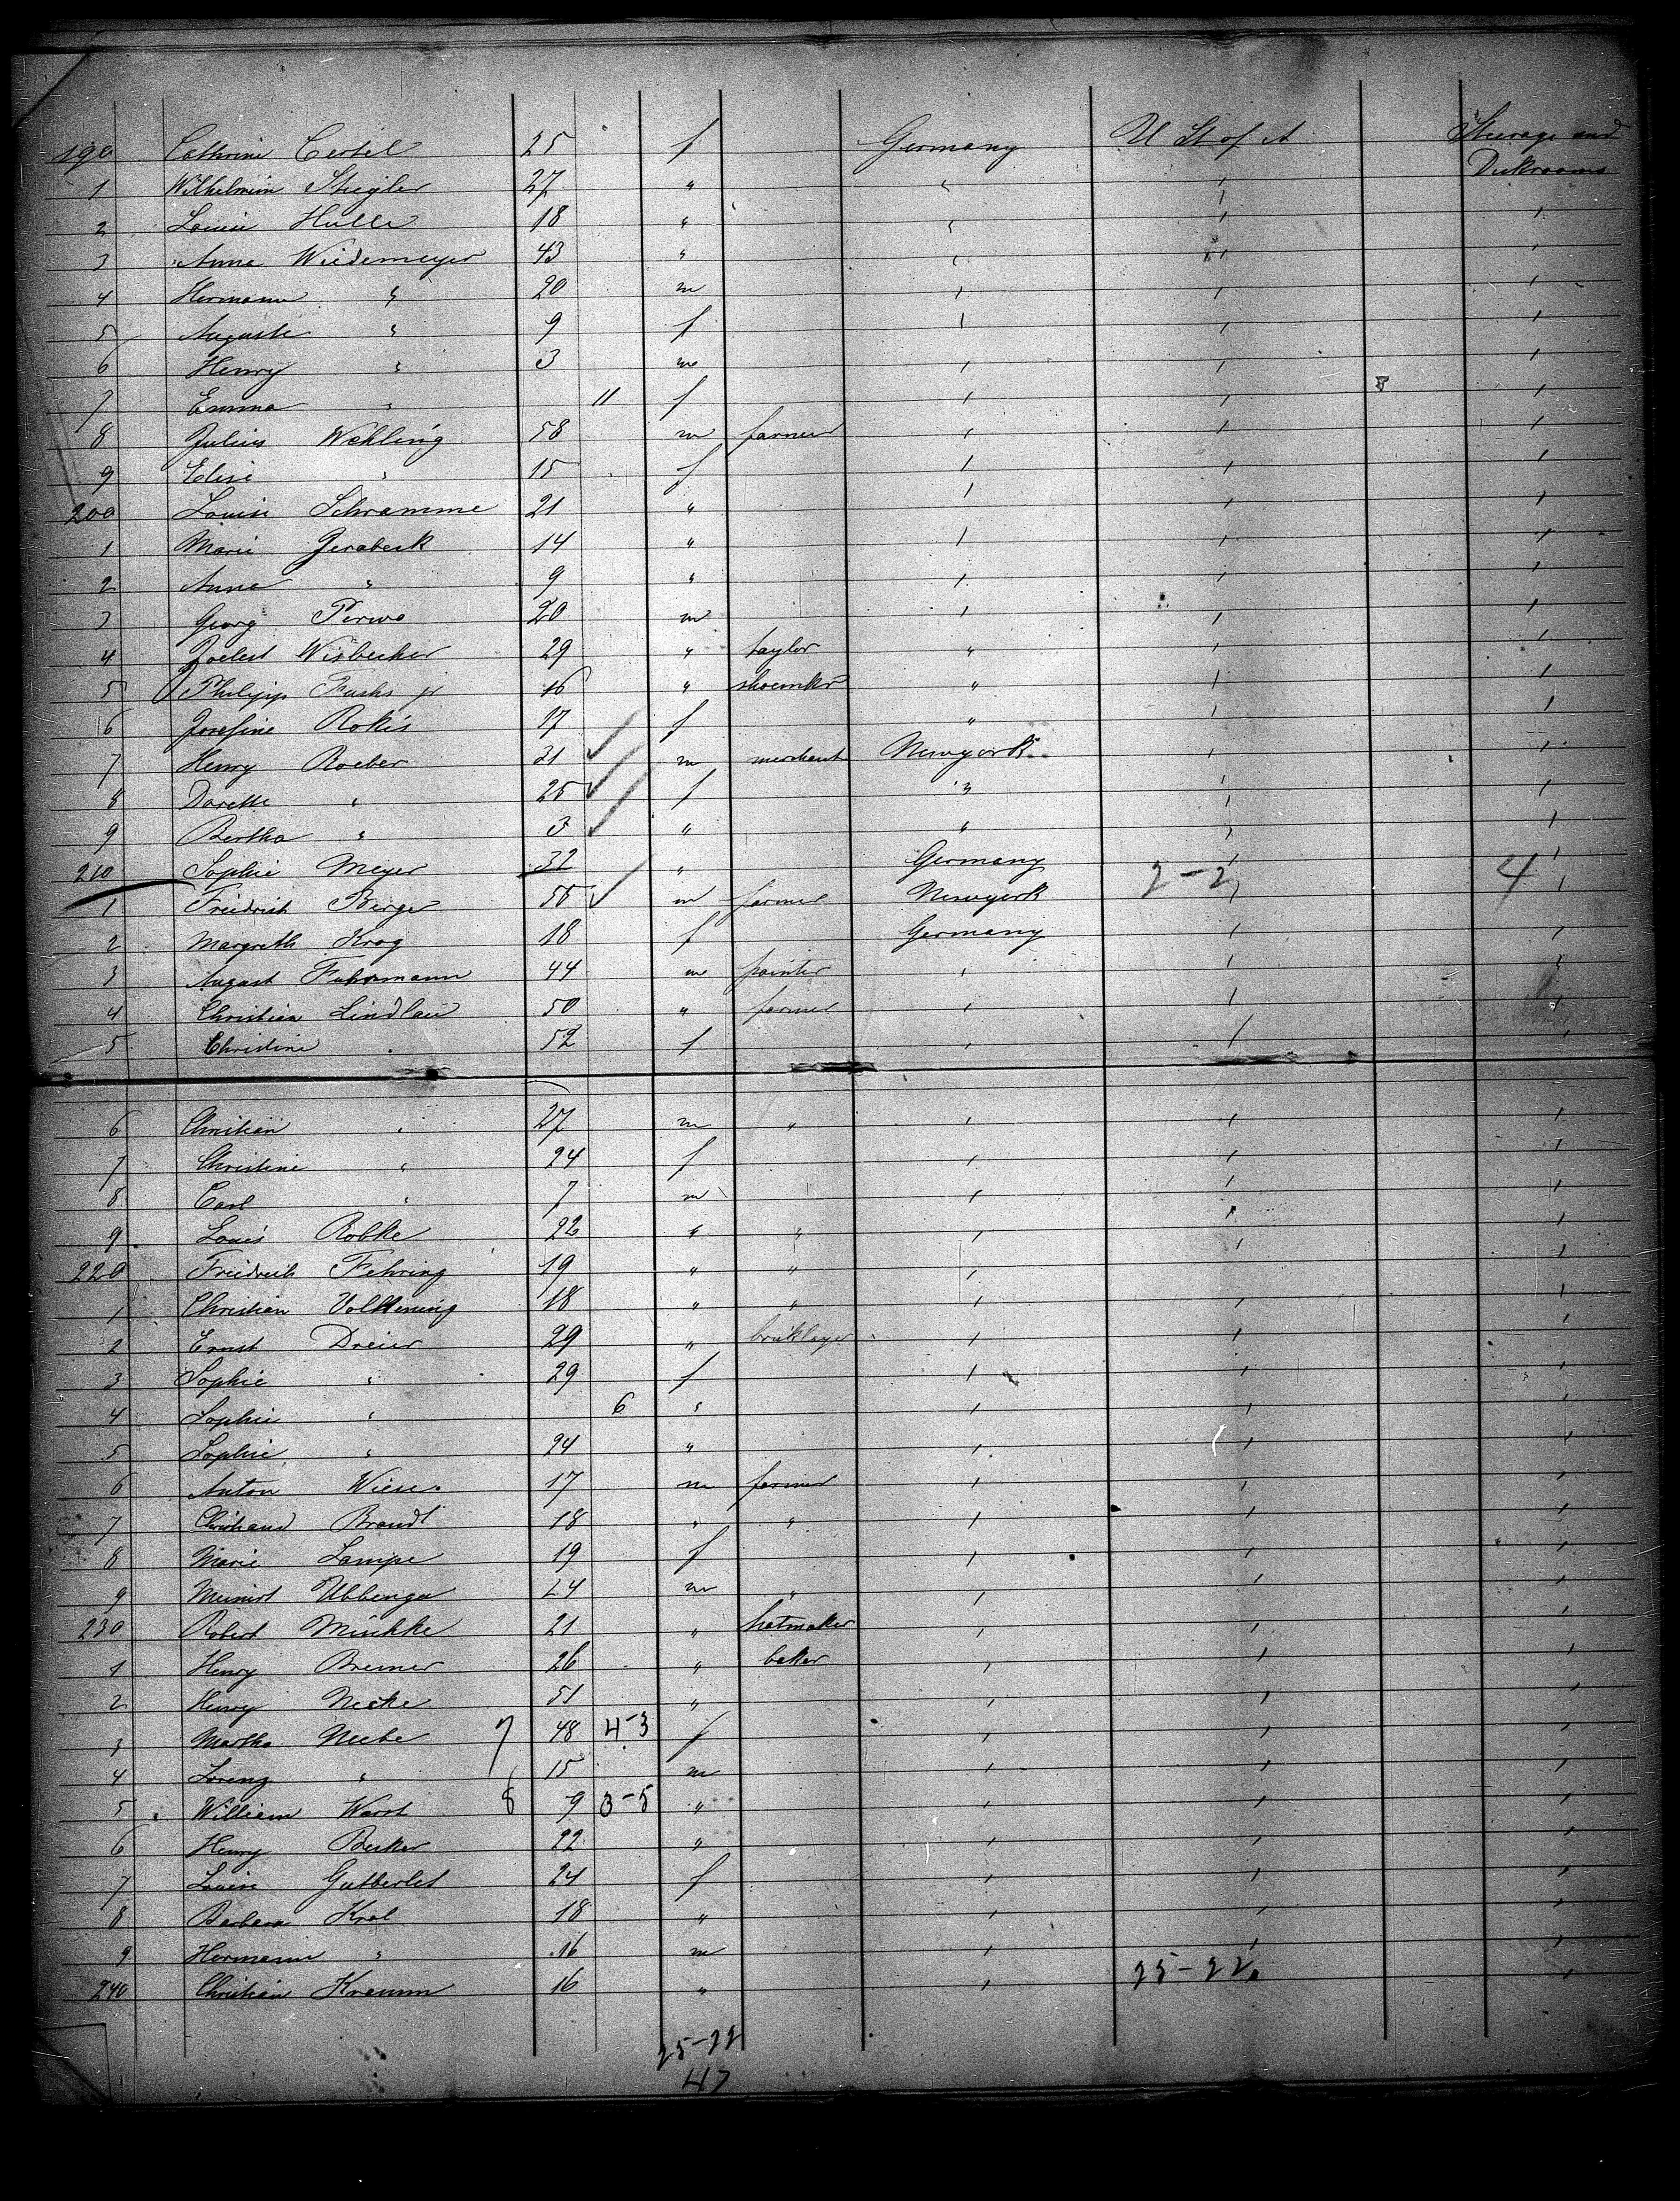 190 Cathrine Oertel 25 f Germany U St of A Steerage and
1 Wilhelmin Stiegler 27 " " " Deckrooms
2 Louise Hulle 18 " " " "
3 Anna Wiedemeyer 43 " " " "
4 Hermann " 20 m " " "
5 Auguste " 9 f " " "
6 Henry " 3 m " " "
7 Emma " 11 f " " "
8 Julius Wehling 58 m farmer " " "
9 Elise " 15 f " " "
200 Louise Schramme 21 " " " "
1 Marie Jerabeck 14 " " " "
2 Anna " 9 " " " "
3 Georg Perwo 20 m " " "
4 Wisbecker 29 " taylor " " "
5 Philipp Fuchs jr 16 " shoemkr " " "
6 Josefine Rokis 17 f " " "
7 Henry Roeber 31 m merchant Newyork " "
8 Dorette " 25 f " " "
9 Bertha " 3 " " " "
210 Sophie Meyer 32 " Germany " "
1 Friedrich Berger 55 m farmer Newyork 2-2 " 4 "
2 Margreth Krog 18 f Germany " "
3 August Fuhrmann 44 m painter " " "
4 Christian Lindlau 50 " farmer " " "
5 Christine " 52 f " " "
6 Christian " 27 m " " " "
7 Christine " 24 f " " "
8 Carl " 7 m " " "
9 Louis Robke 22 " " " " "
220 Friedrich Fehring 19 " " " " "
1 Christian Volkening 18 " " " " "
2 Ernst Dreier 29 " bricklayer " " "
3 Sophie " 29 f " " "
4 Sophie " 6 " " " "
5 Sophie " 24 " " " "
6 Anton Wiese 17 m farmer " " "
7 Brandt 18 " " " " "
8 Marie Lampe 19 f " " "
9 Meinert Ubbenga 24 m " " " "
230 Robert Mischke 21 " hatmaker " " "
1 Henry Bremer 26 " baker " " "
2 Henry 51 " " " "
3 Martha Neebe 7 48 4-3 f " " "
4 Loreng " 15 m " " "
5 William Warst 8 9 3-5 " " " "
6 Henry Becker 22 " " " "
7 Louise Gutberlet 24 f " " "
8 Barbara Kral 18 " " " "
9 Hermann " 16 m " " "
240 Christian Kramm 16 " " 25-22 "
25-22
47